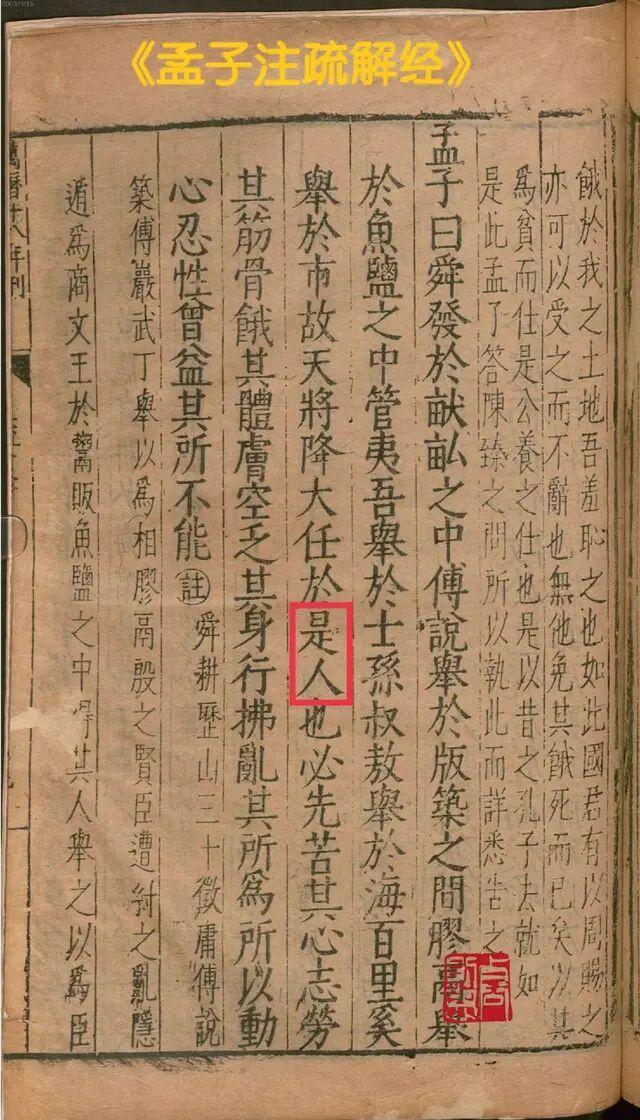 《孟子注疏解经》
餓於我之土地吾羞恥之也如此國君有以周賜之
亦可以受之而不辭也無他免其餓死而已矣以其
為貧而仕是公養之仕也是以昔之孔子去就如
是此孟子答陳臻之問所以執此而詳悉告之
孟子曰舜發於畎畝之中傅說舉於版築之間膠鬲舉
於魚鹽之中管夷吾舉於士孫叔敖舉於海百里奚
舉於市故天將降大任於是人也必先苦其心志勞
其筋骨餓其體膚空乏其身行拂亂其所為所以動
心忍性曾益其所不能註舜耕歷山三十徵庸傅說
築傅巖武丁舉以為相膠鬲殷之賢臣遭紂之亂隱
遁為商文王於鬻販魚鹽之中得其人舉之以為臣
萬曆十八年刊